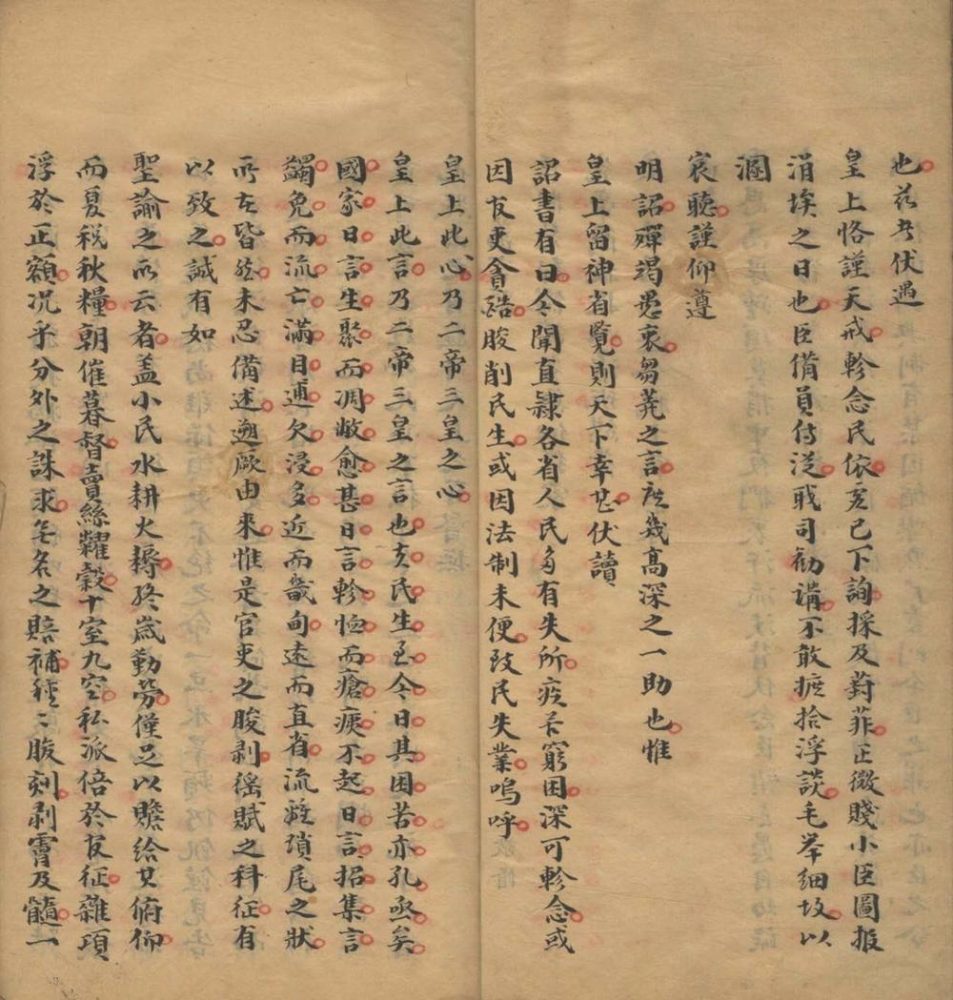 也兹者伏遇
皇上恪謹天戒軫念民依亥已下詢採及葑菲正微賤小臣圖报
涓埃之日也臣備員侍從戢司勸講不敢摭拾浮談毛举細故以
溷
宸聽謹仰遵
明詔殫竭愚衷芻荛之言庶幾高深之一助也惟
皇上留神省覽則天下幸甚伏讀
詔書有曰今聞直隸各省人民多有失所疾苦窮困深可軫念或
因官吏貪酷朘削民生或因法制未便致民失業嗚呼
皇上此心乃二帝三皇之心
皇上此言乃二帝三皇之言也夫民生至今日其困苦亦孔亟矣
國家日言生聚而凋敝愈甚日言軫恤而瘡痍不起日言招集言
蠲免而流亡滿目逋欠浸多近而畿甸遠而直省流離瑣尾之狀
所在皆然未忍備述遡厥由來惟是官吏之朘剥徭賦之科征有
以致之誠有如
聖諭之所云者盖小民水耕火耨终歲勤劳僅足以贍给其俯仰
而夏税秋糧朝催暮督賣絲糶穀十室九空私派倍於官征雜項
浮於正額况乎分外之誅求無名之賠補種〻朘刻剥膚及髓一